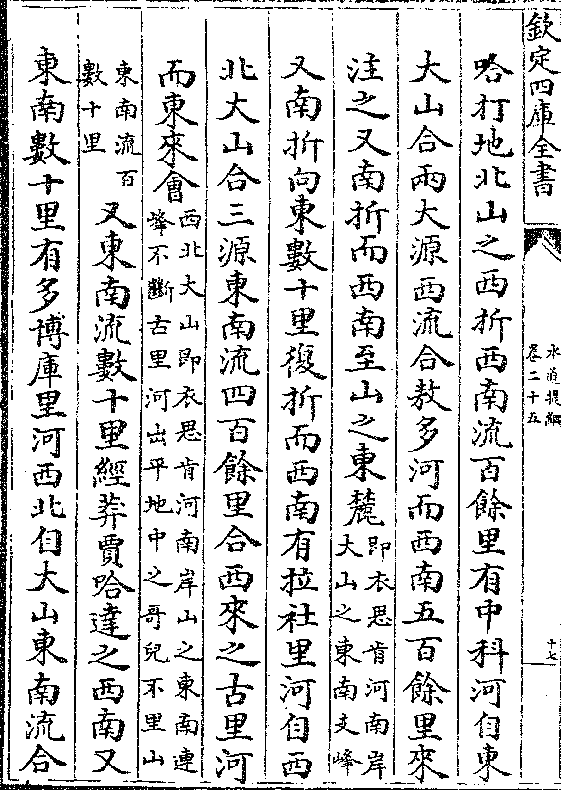 欽定四庫全書
水道提綱
卷二十五
十七
哈打地北山之西折西南流百餘里有中科河自東
大山合兩大源西流合敖多河而西南五百餘里來
注之又南折而西南至山之東麓即衣思肯河南岸
大山之東南支峰
又南折向東數十里復折而西南有拉社里河自西
北大山合三源東南流四百餘里合西來之古里河
而東來會西北大山即衣思肯河南岸山之東南連
峰不斷古里河出平地中之哥兒不里山
東南流百
數十里又東南流數十里經莽賈哈達之西南又
東南數十里有多博庫里河西北自大山東南流合